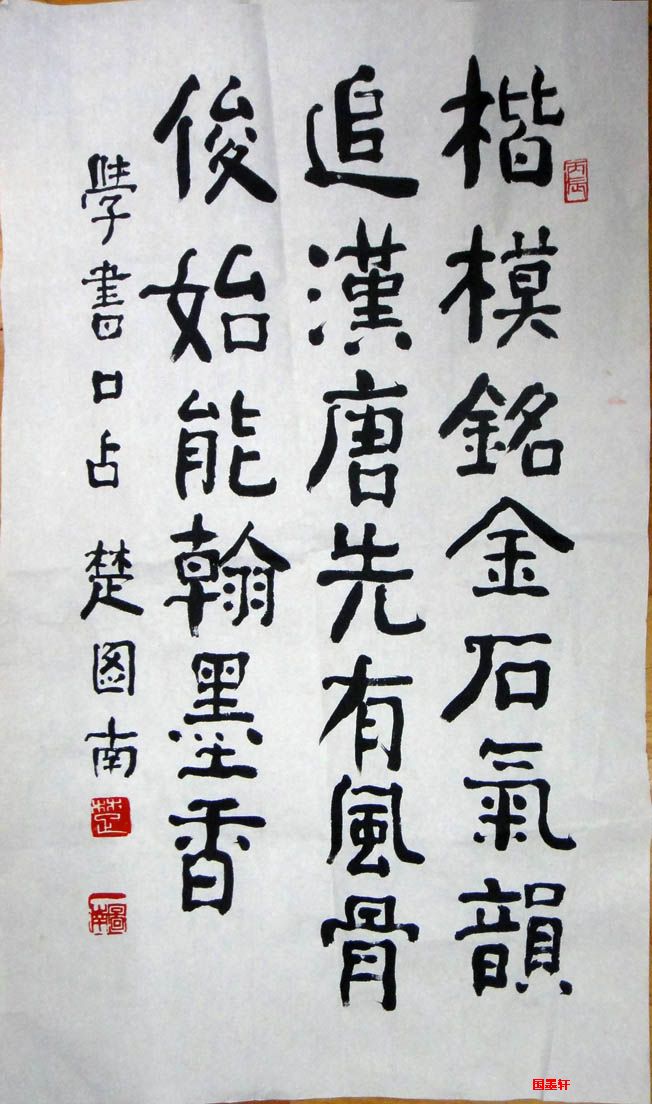 楷模銘金石氣韻
追漢唐先有風骨
俊始能翰墨香
學書口占 楚圖南
丙辰
楚
圖南
国墨轩